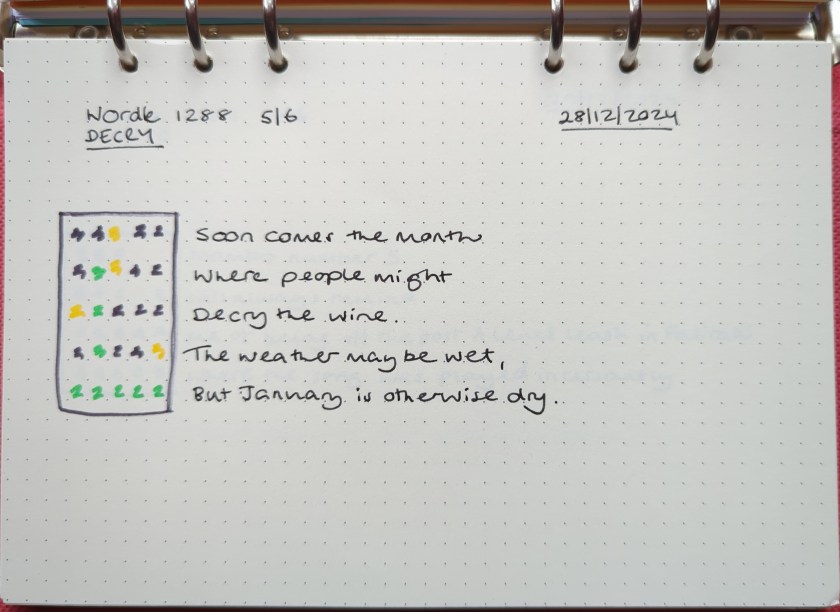 Wordle 1288 5/6 28/12/2024
DECRY
Soon comes the month
Where people might
Decry the wine.
The weather may be wet,
But January is otherwise dry.